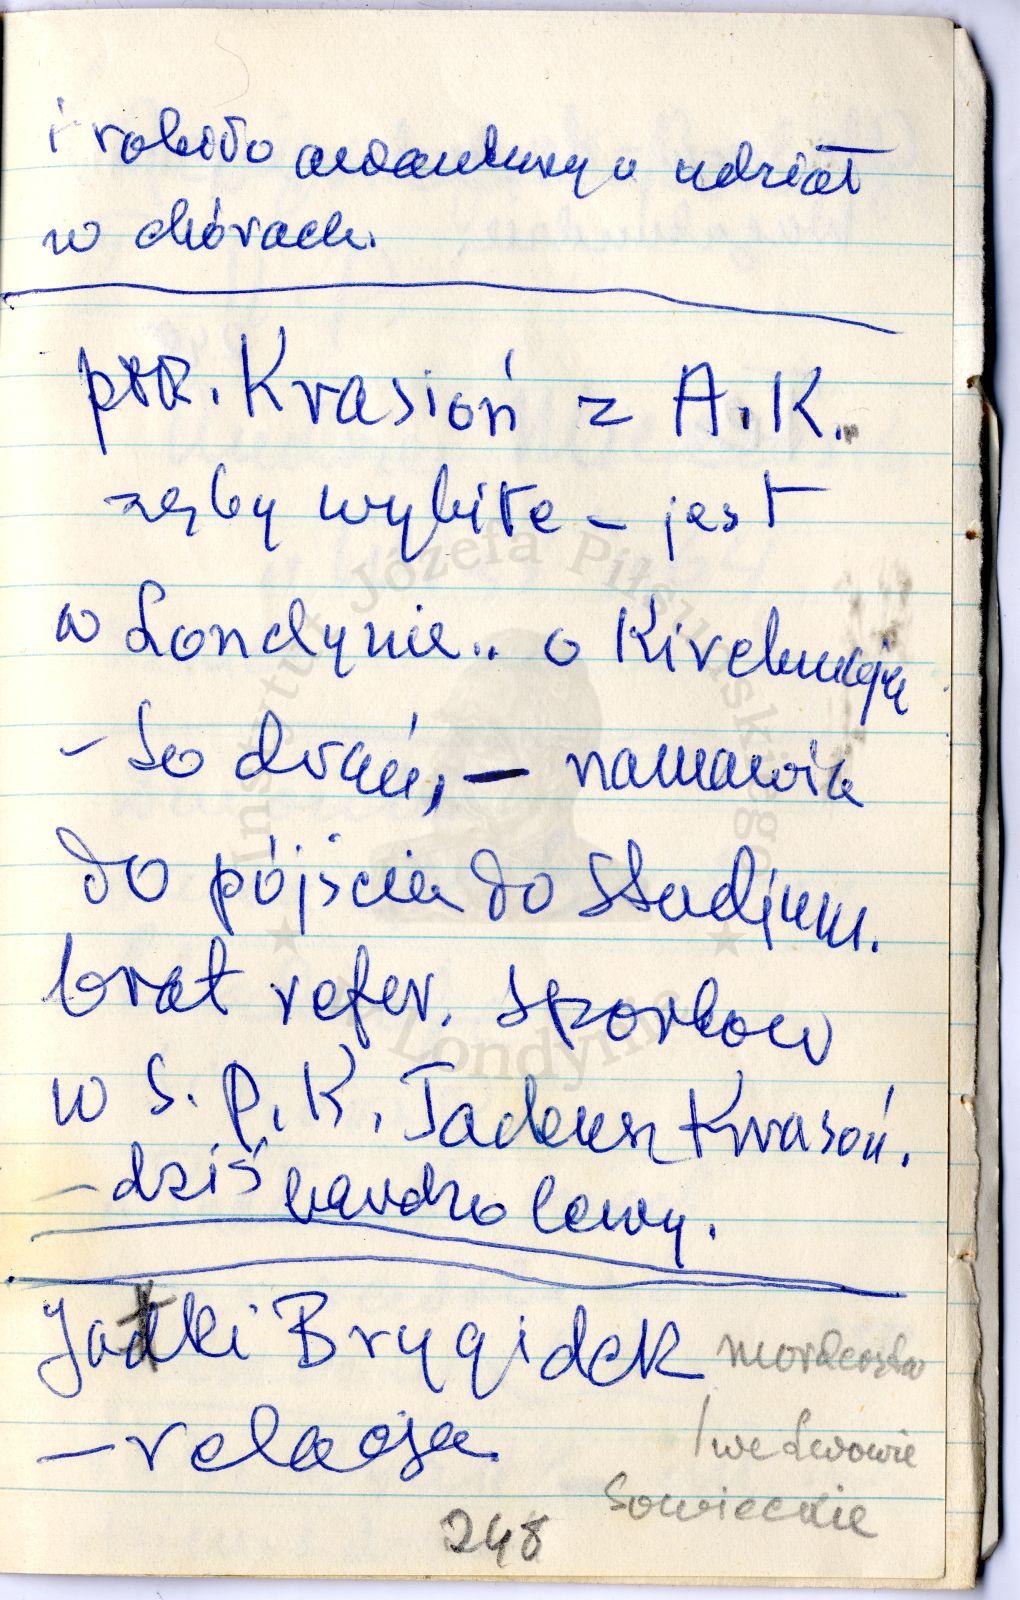 i udział
w chórach.
płk. Krasioń z A.K.
zęby wybite – jest
w Londynie.. o
– to drań, – namawia
do pójścia do Studjum.
brat refer. sportow
w S.P.K. Tadeusz Krasoń.
– dziś bardzo lewy.
Jatki Brygidek morderstwa
– relacja /we Lwowie
Sowieckie
248
Instytut Józefa Piłsudskiego
w Londynie